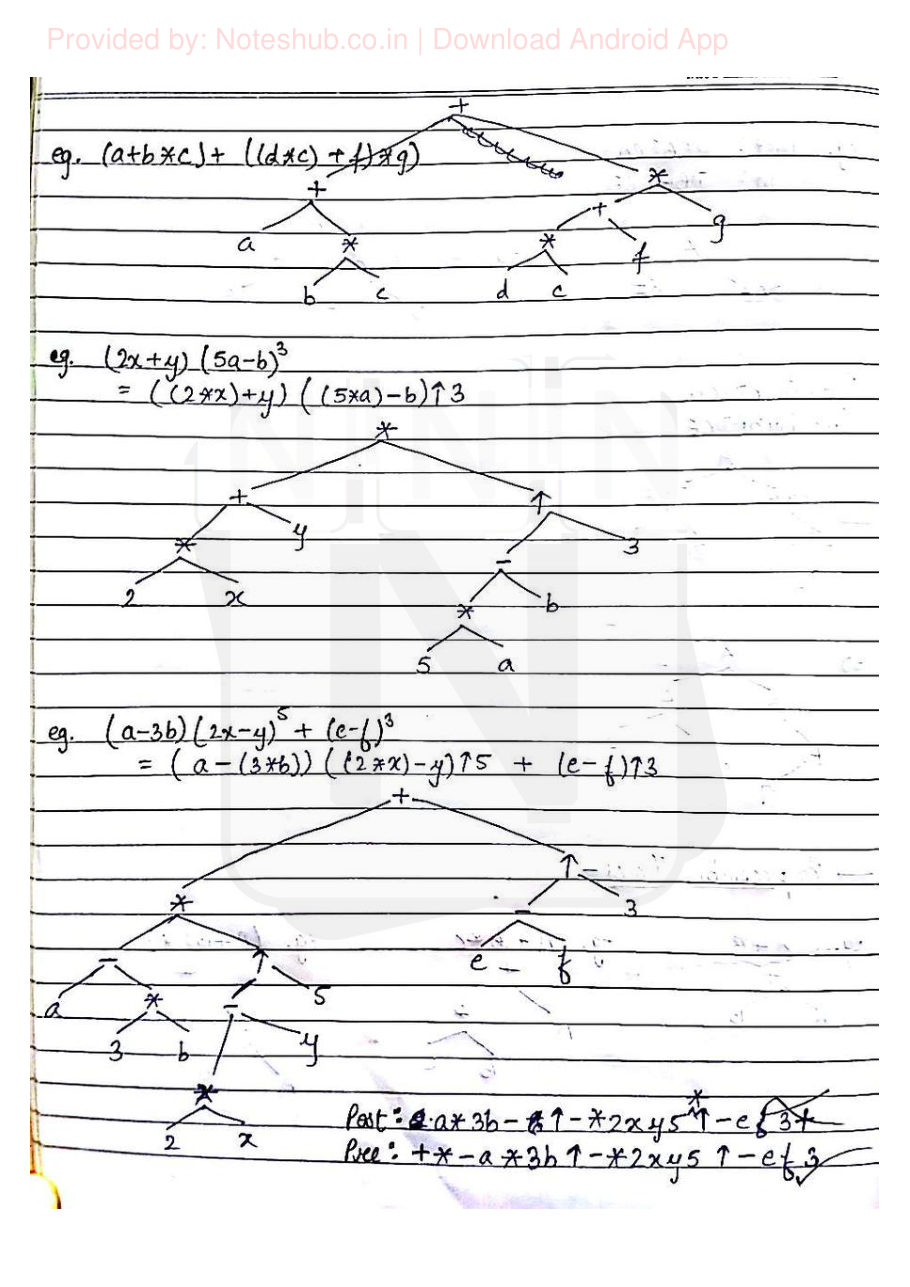 Provided by: Noteshub.co.in | Download Android App
+
eg. (a+b*c)+ ((d*c) + f)*g)
+ *
+
a * * f g
b c d c
eg. (2x+y) (5a-b)³
= ((2*x)+y) ((5*a)-b)↑3
*
+ ↑
* y - 3
2 x * b
5 a
eg. (a-3b) (2x-y)⁵ + (e-f)³
= (a-(3*b)) ((2*x)-y)↑5 + (e-f)↑3
+
↑
* - 3
- ↑ e - f
a * - 5
3 b y
*
2 x
Post: a*3b- ↑-*2xy5 * ↑-ef3+
Pree: +*-a*3b↑-*2xy5 ↑-ef3